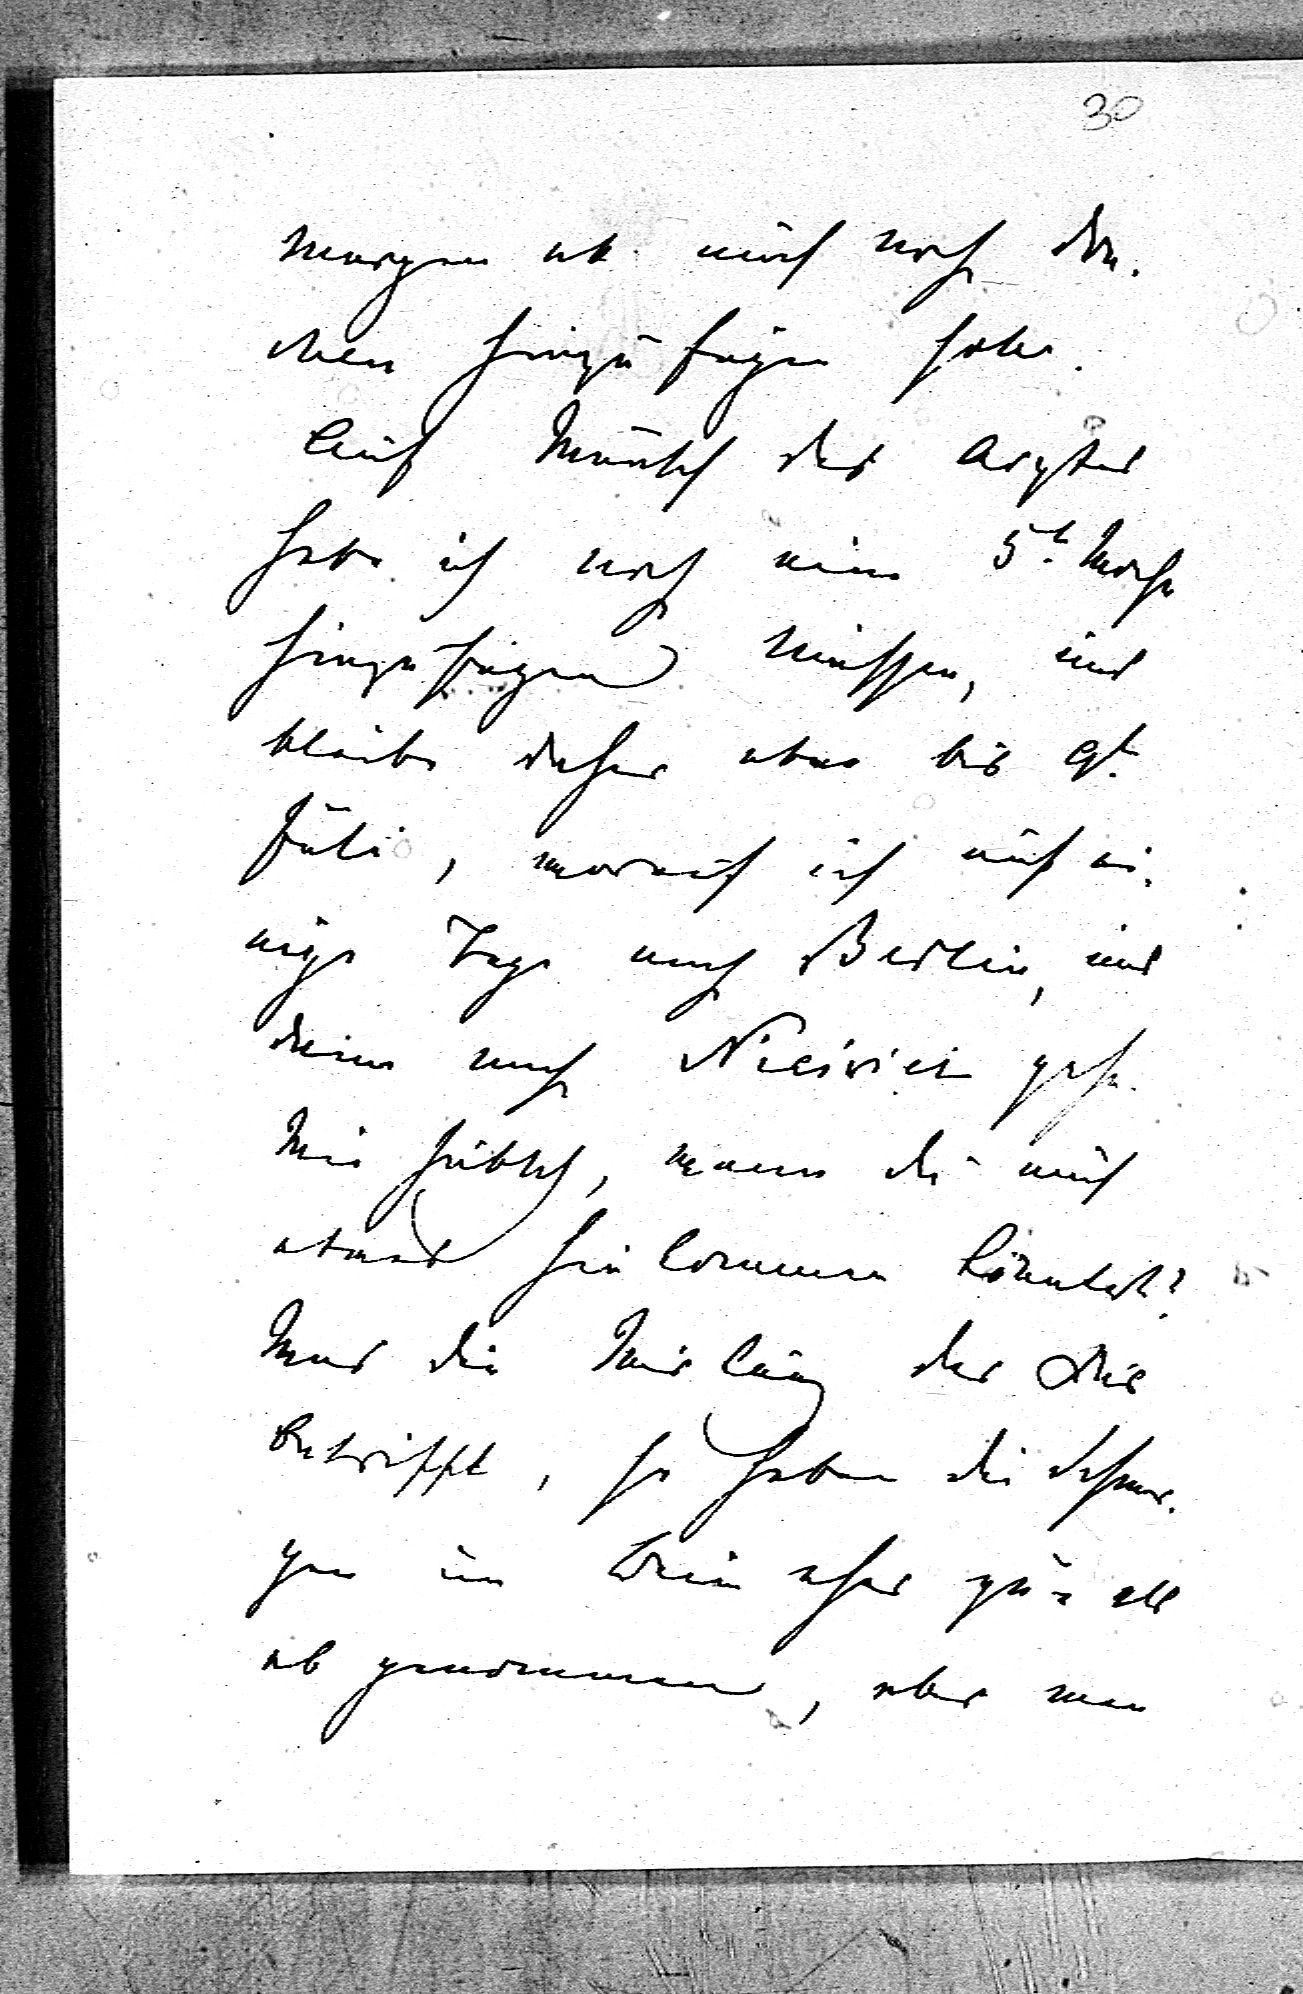 30
morgen ab auch noch Dou-
chen hinzufügen solle.
Auf Wunsch des Arztes
habe ich noch eine 5t. Woche
hinzufügen müssen, und
bleibe daher etwa bis 9t.
Juli, worauf ich auf ei-
nige Tage nach Berlin, und
dann nach gehe.
Wie hübsch, wenn du auch
etwas hinkommen könntest?
Was die Wirkung der Cur
betrifft, so haben die Schmer-
zen im Bein eher zu- als
abgenommen, aber man